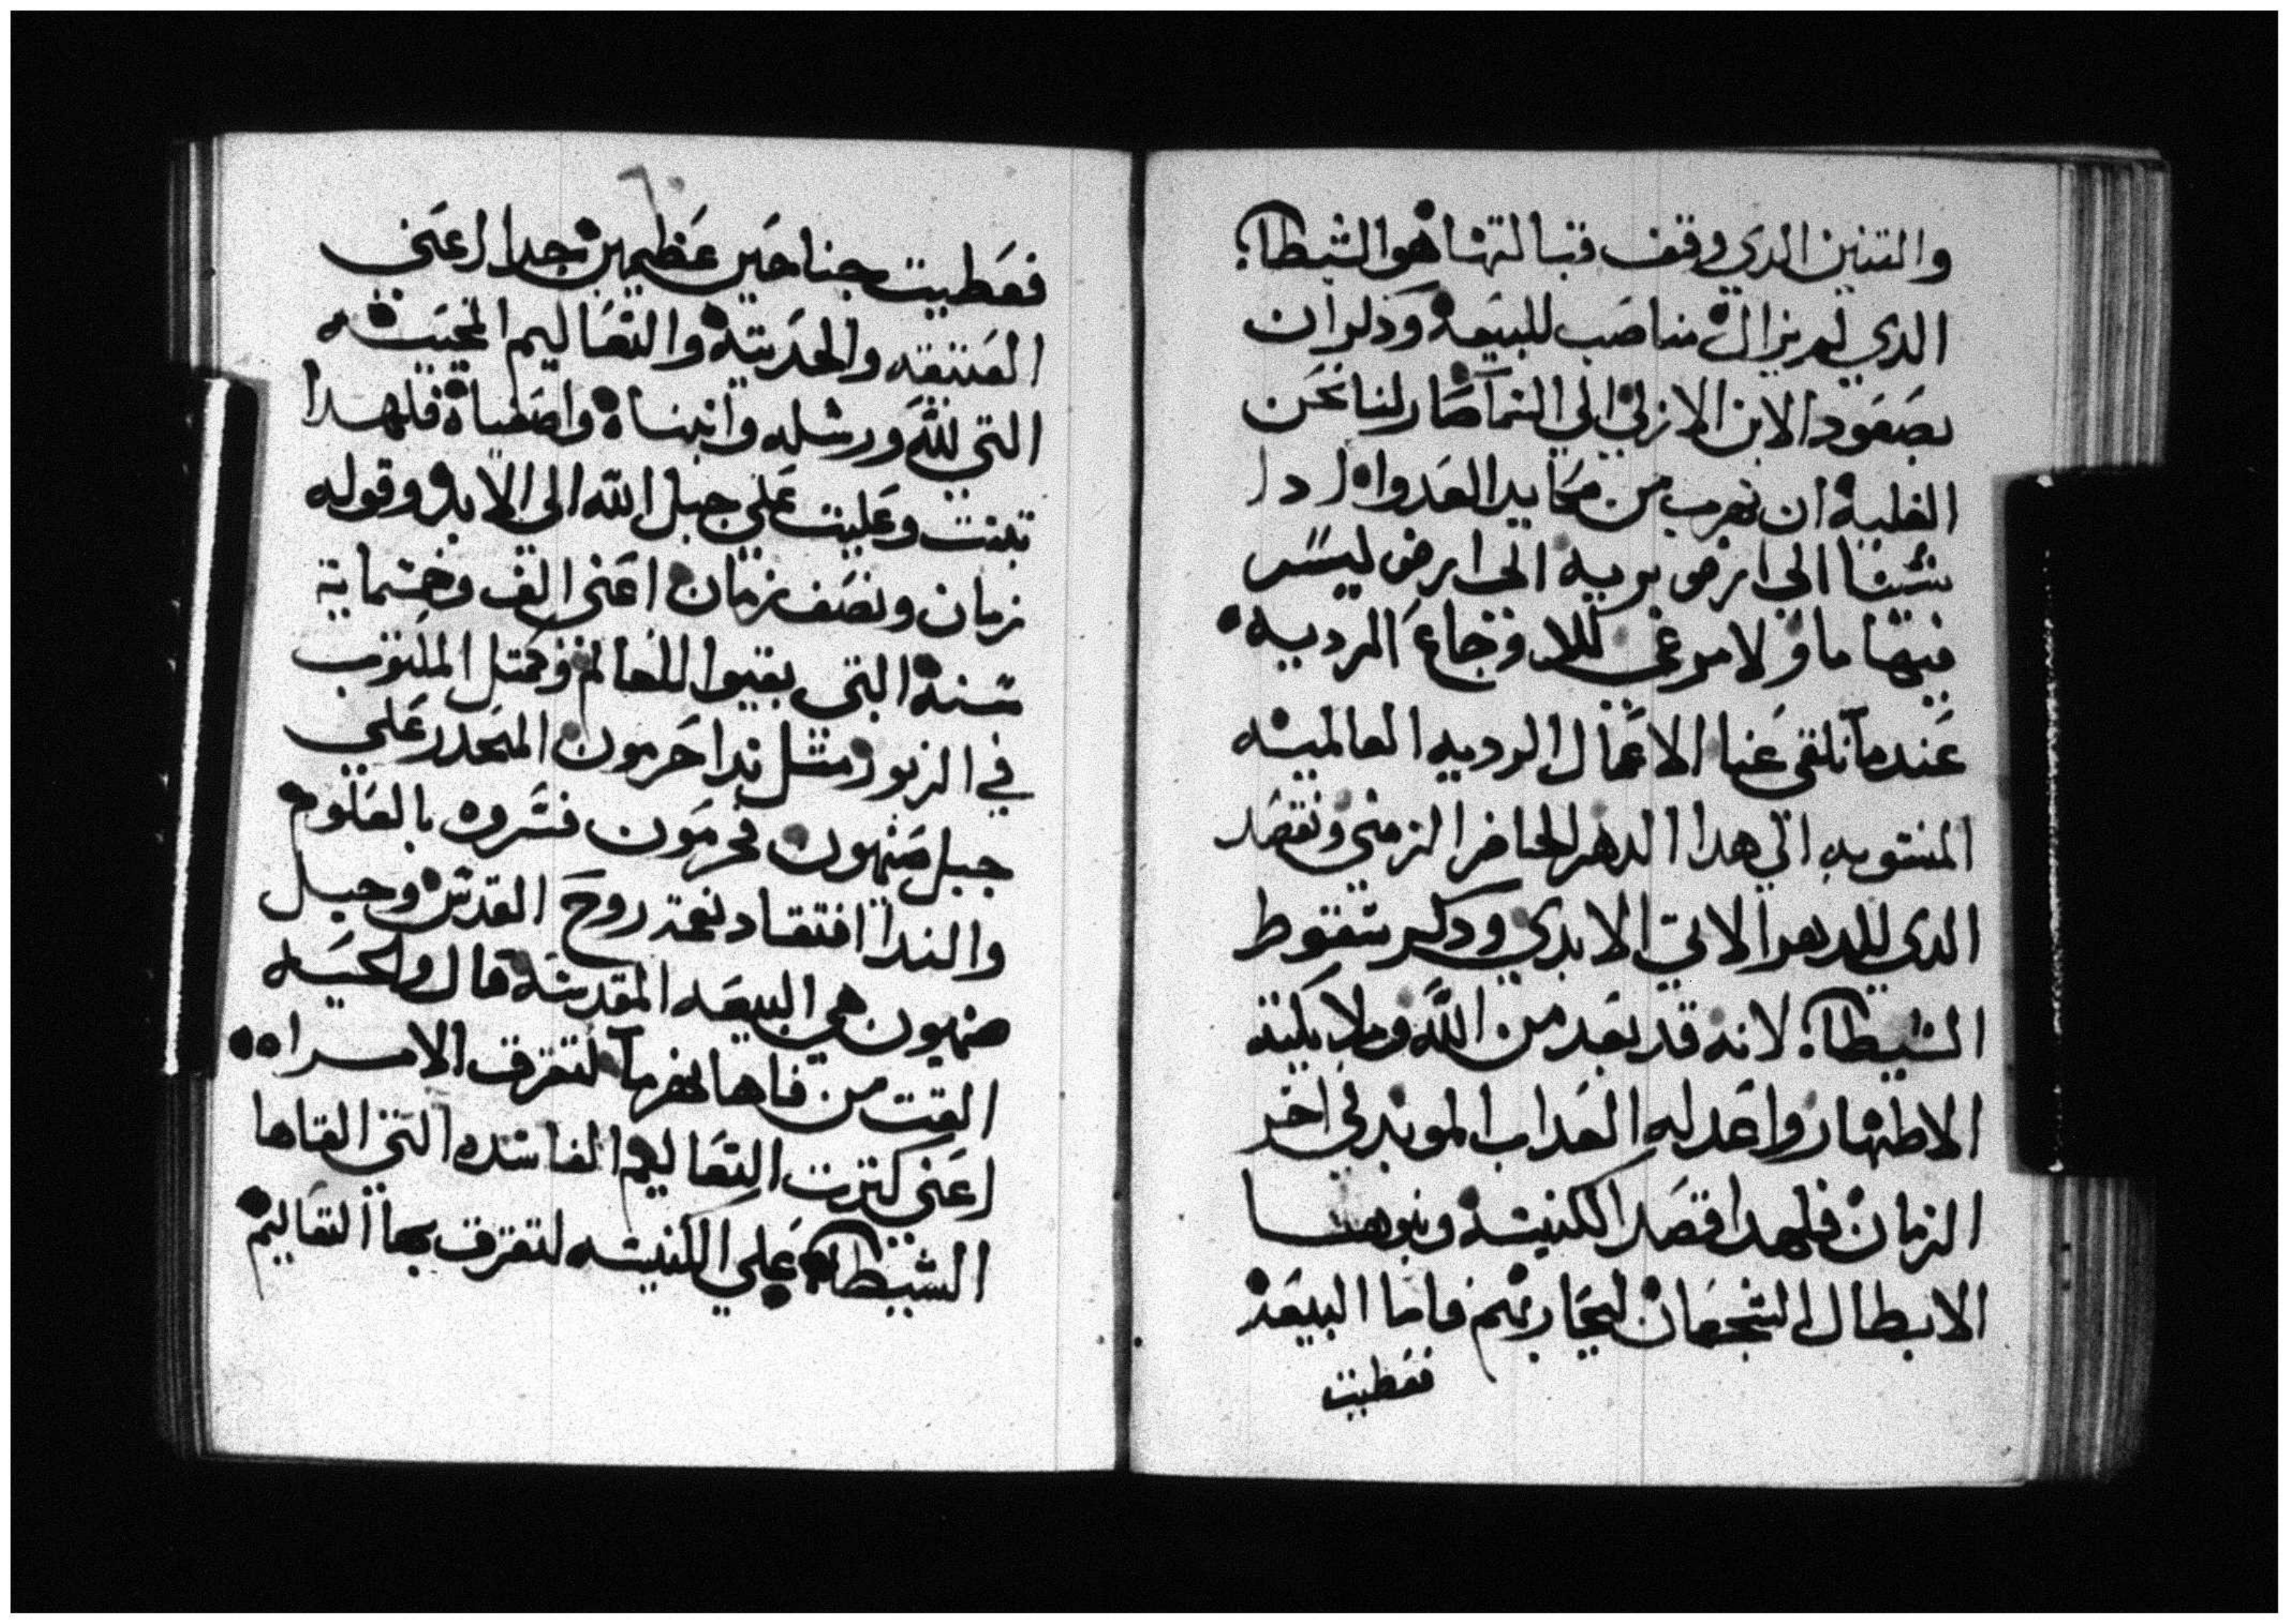 والتنين الدي وقف قبالتها هو الشيطان
الدي لم يزال مناصب للبيعة وذكر ان
بصعود الابن الازلي الي السما صار لنا نحن
الغلبة ان نهرب من مكايد العدو اذا
شينا الي ارض برية الي ارض ليس
فيها ما ولا مرعي للاوجاع الردية
عندما نلقي عنا الاعمال الردية العالمية
المنسوبه الي هدا الدهر الحاضر الزمني ونقصد
الدي للدهر الاتي الابدي وذكر سقوط
الشيطان لانه قد بعد من الله وملايكته
الاطهار واعد له العداب الموبد في اخر
الزمان فلهدا قصد الكنيسة وبنوها
الابطال الشجعان ليحاربهم فاما البيعة
فعطيت
فعطيت جناحين عظيمين جدا اعني
العتيقه والحديثة والتعاليم المحييه
التي لله ورسله وانبياه واصفياه فلهدا
تبتت وعليت علي جبل الله الي الابد وقوله
زمان ونصف زمان اعني الف وخسماية
سنة التي بقيوا للعالم وكمتل المكتوب
في الزبور متل ندا حرمون المنحدر علي
جبل صهيون فحرمون فسروه بالعلوم
والندا افتقاد نعمة روح القدس وجبل
صهيون هي البيعه المقدسة قال والحيه
القت من فاها نهر ما لتغرق الامراه
اعني كترت التعاليم الفاسده التي القاها
الشيطان علي الكنيسه لتغرق بها التعاليم